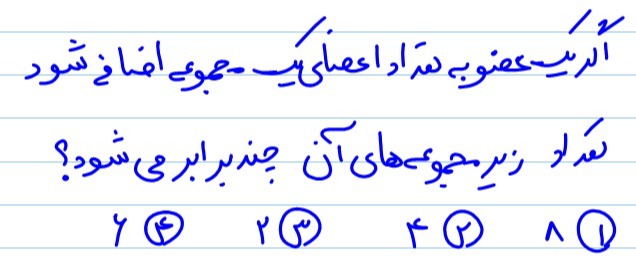 اگر یک عضو به تعداد اعضای یک مجموعه اضافه شود
تعداد زیر مجموعه‌های آن چند برابر می شود؟
۱ ۸ ۲ ۴ ۳ ۲ ۴ ۶